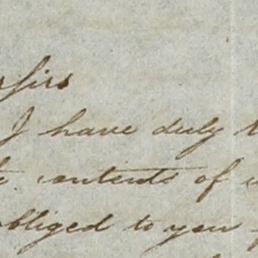 Sirs
I have duly
contents of
obliged to you